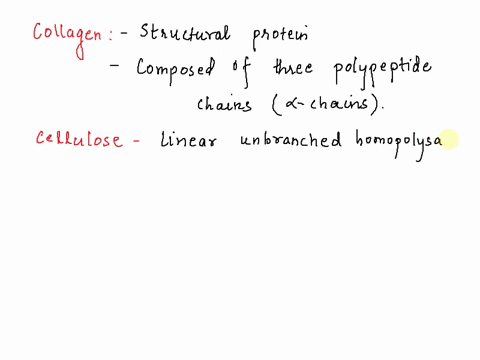 Collagen: - Structural protein
- Composed of three polypeptide
chains (α-chains).
Cellulose - Linear unbranched homopolysa